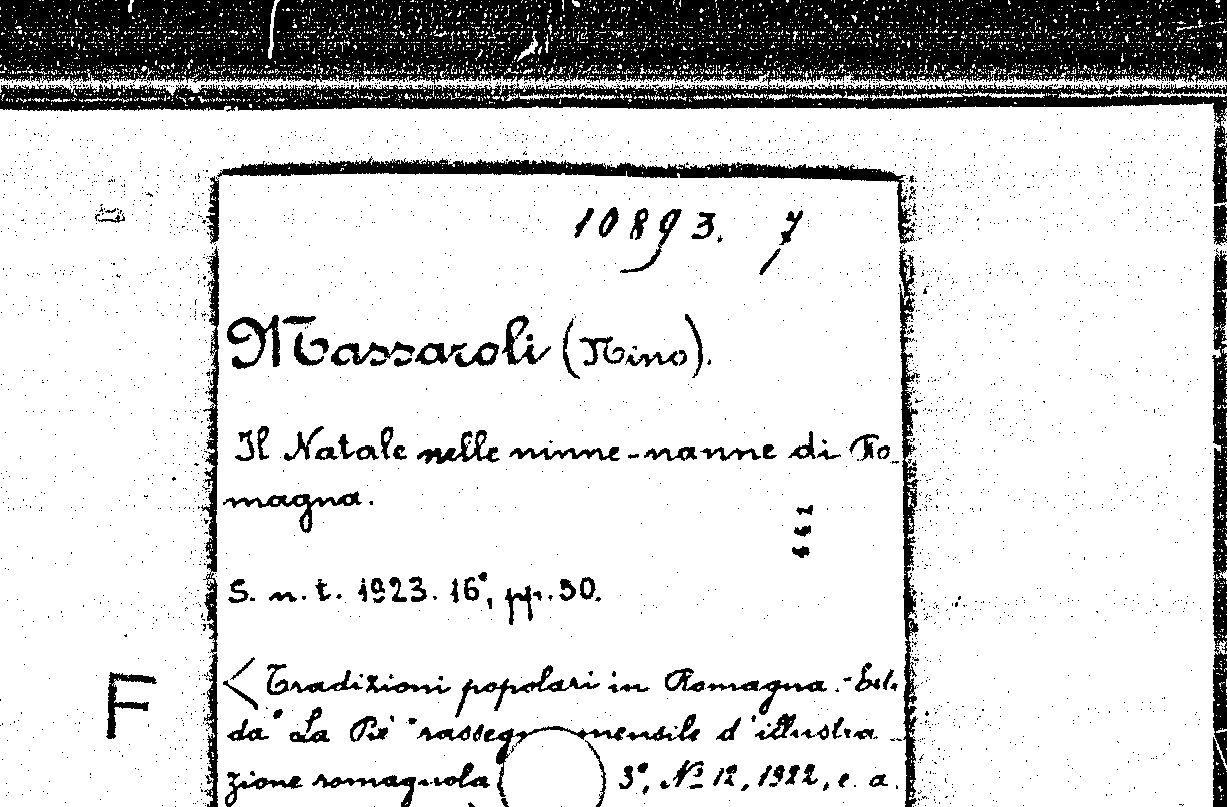 10893. 7
Massaroli (Nino).
Il Natale nelle ninne-nanne di Ro-
magna.
S. n. t. 1923. 16°, pp. 30.
F
< Tradizioni popolari in Romagna. - Estr.
da "La Piê" rassegna mensile d'illustra-
zione romagnola 3°, Nº 12, 1922, e a.